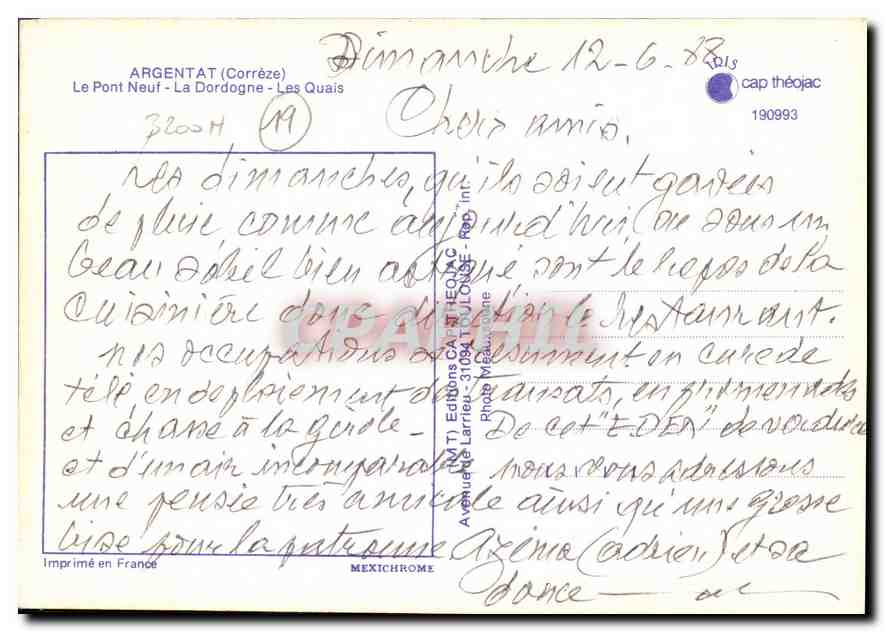 ARGENTAT (Corrèze)
Le Pont Neuf - La Dordogne - Les Quais
Dimanche 12-6-88
IRIS
cap théojac
190993
3200H 19
Chers amis,
Les dimanches, qu'ils soient gavées
de pluie comme aujourd'hui ou sous un
beau soleil bien astiqué sont le repos de la
cuisinière donc direction le restaurant.
nos occupations se résument en cure de
télé en déploiement de transats, en promenades
et chasse à la girole -
De cet "EDEN" de verdure
et d'un air incomparable nous vous adressons
une pensée très amicale ainsi qu'une grosse
bise pour la patronne Azéma (adrien) et sa
donce
(MT) Editions CAP-THEOJAC
Avenue de Larrieu - 31094 TOULOUSE - Rep. int.
Photo
CPARAMA
Imprimé en France
MEXICHROME